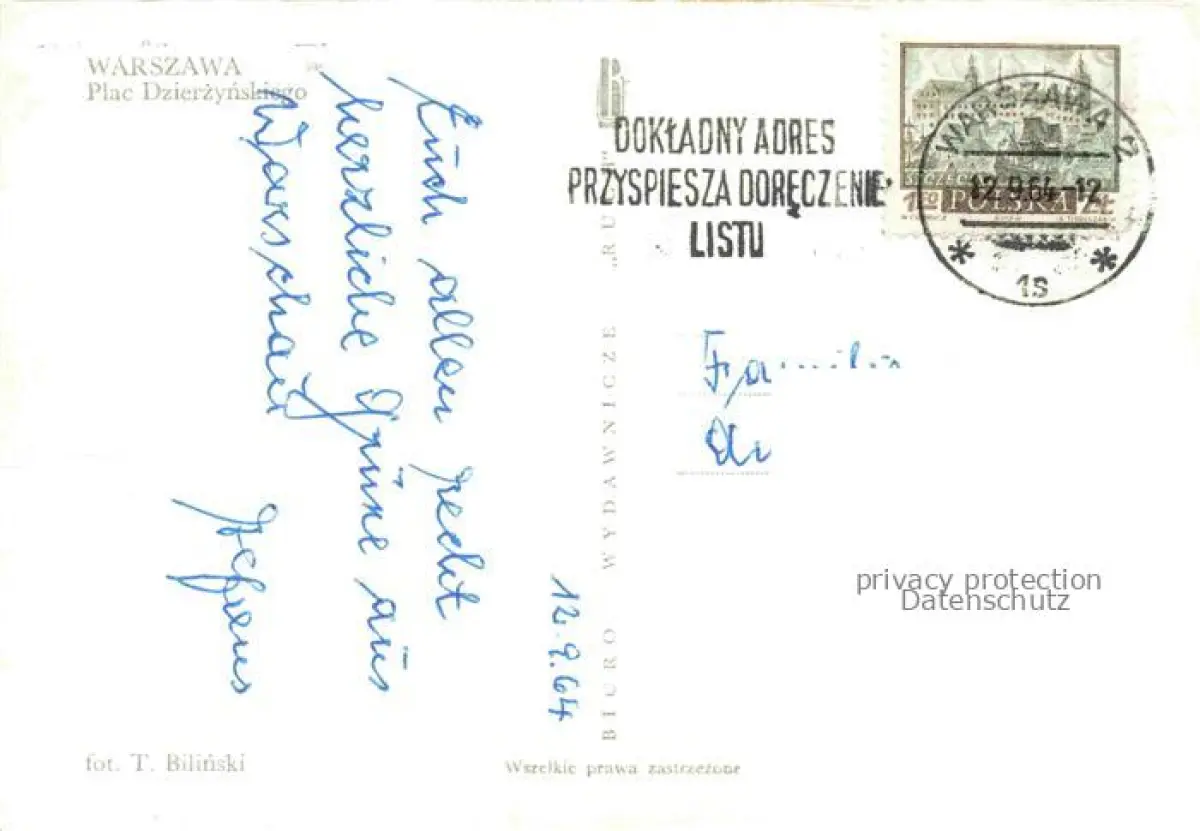 WARSZAWA
Plac Dzierżyńskiego
Euch allen recht
herzliche Grüße aus
Warschau
12.9.64
fot. T. Biliński
BIURO WYDAWNICZE „RUCH”
Wszelkie prawa zastrzeżone
DOKŁADNY ADRES
PRZYSPIESZA DORĘCZENIE
LISTU
WARSZAWA 2
12.9.64-12
1s
SZCZECIN
1,50 POLSKA ZŁ
Familie
privacy protection
Datenschutz